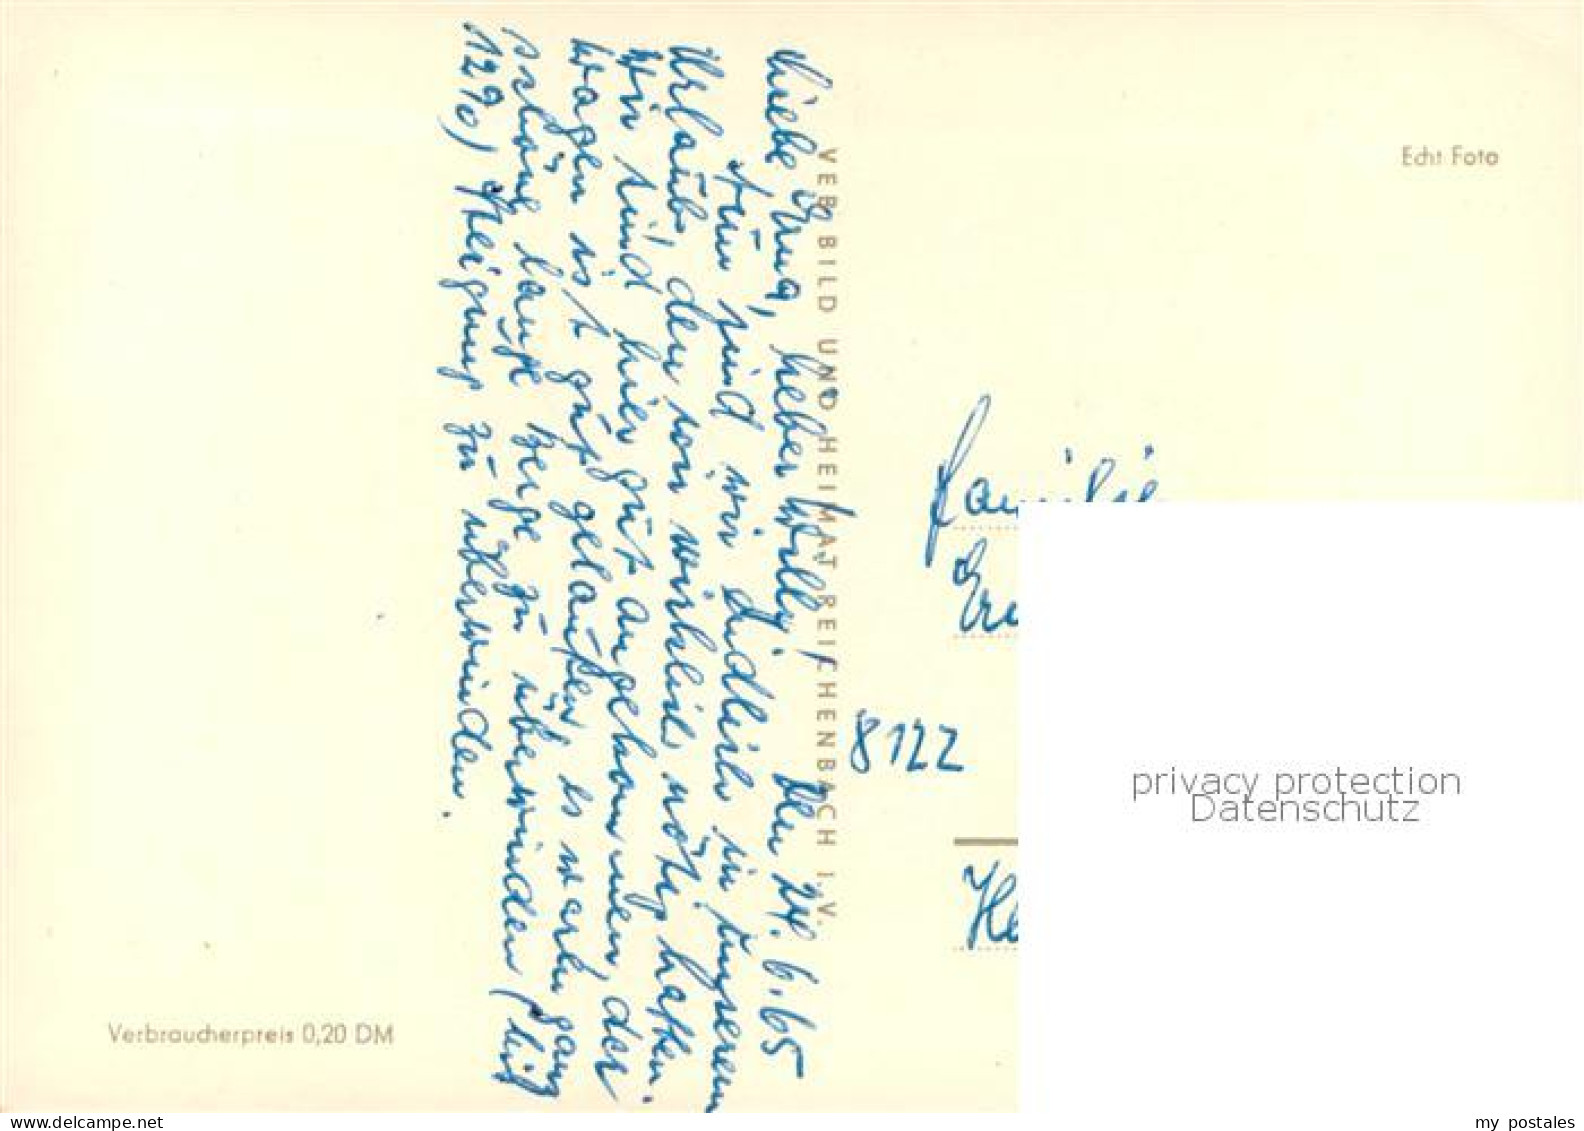 Liebe Erna, lieber Willy! Den 24.6.65
Nun sind wir endlich in unserem
Urlaub, den wir wirklich nötig hatten.
Wir sind hier gut angekommen, der
Wagen ist gut gelaufen, es waren ganz
schöne lange Berge zu überwinden (bis
12%) Steigung zu überwinden.
VEB BILD UND HEIMAT REICHENBACH I. V.
Echt Foto
Familie
8122
Verbraucherpreis 0,20 DM
privacy protection
Datenschutz
www.delcampe.net
my_postales